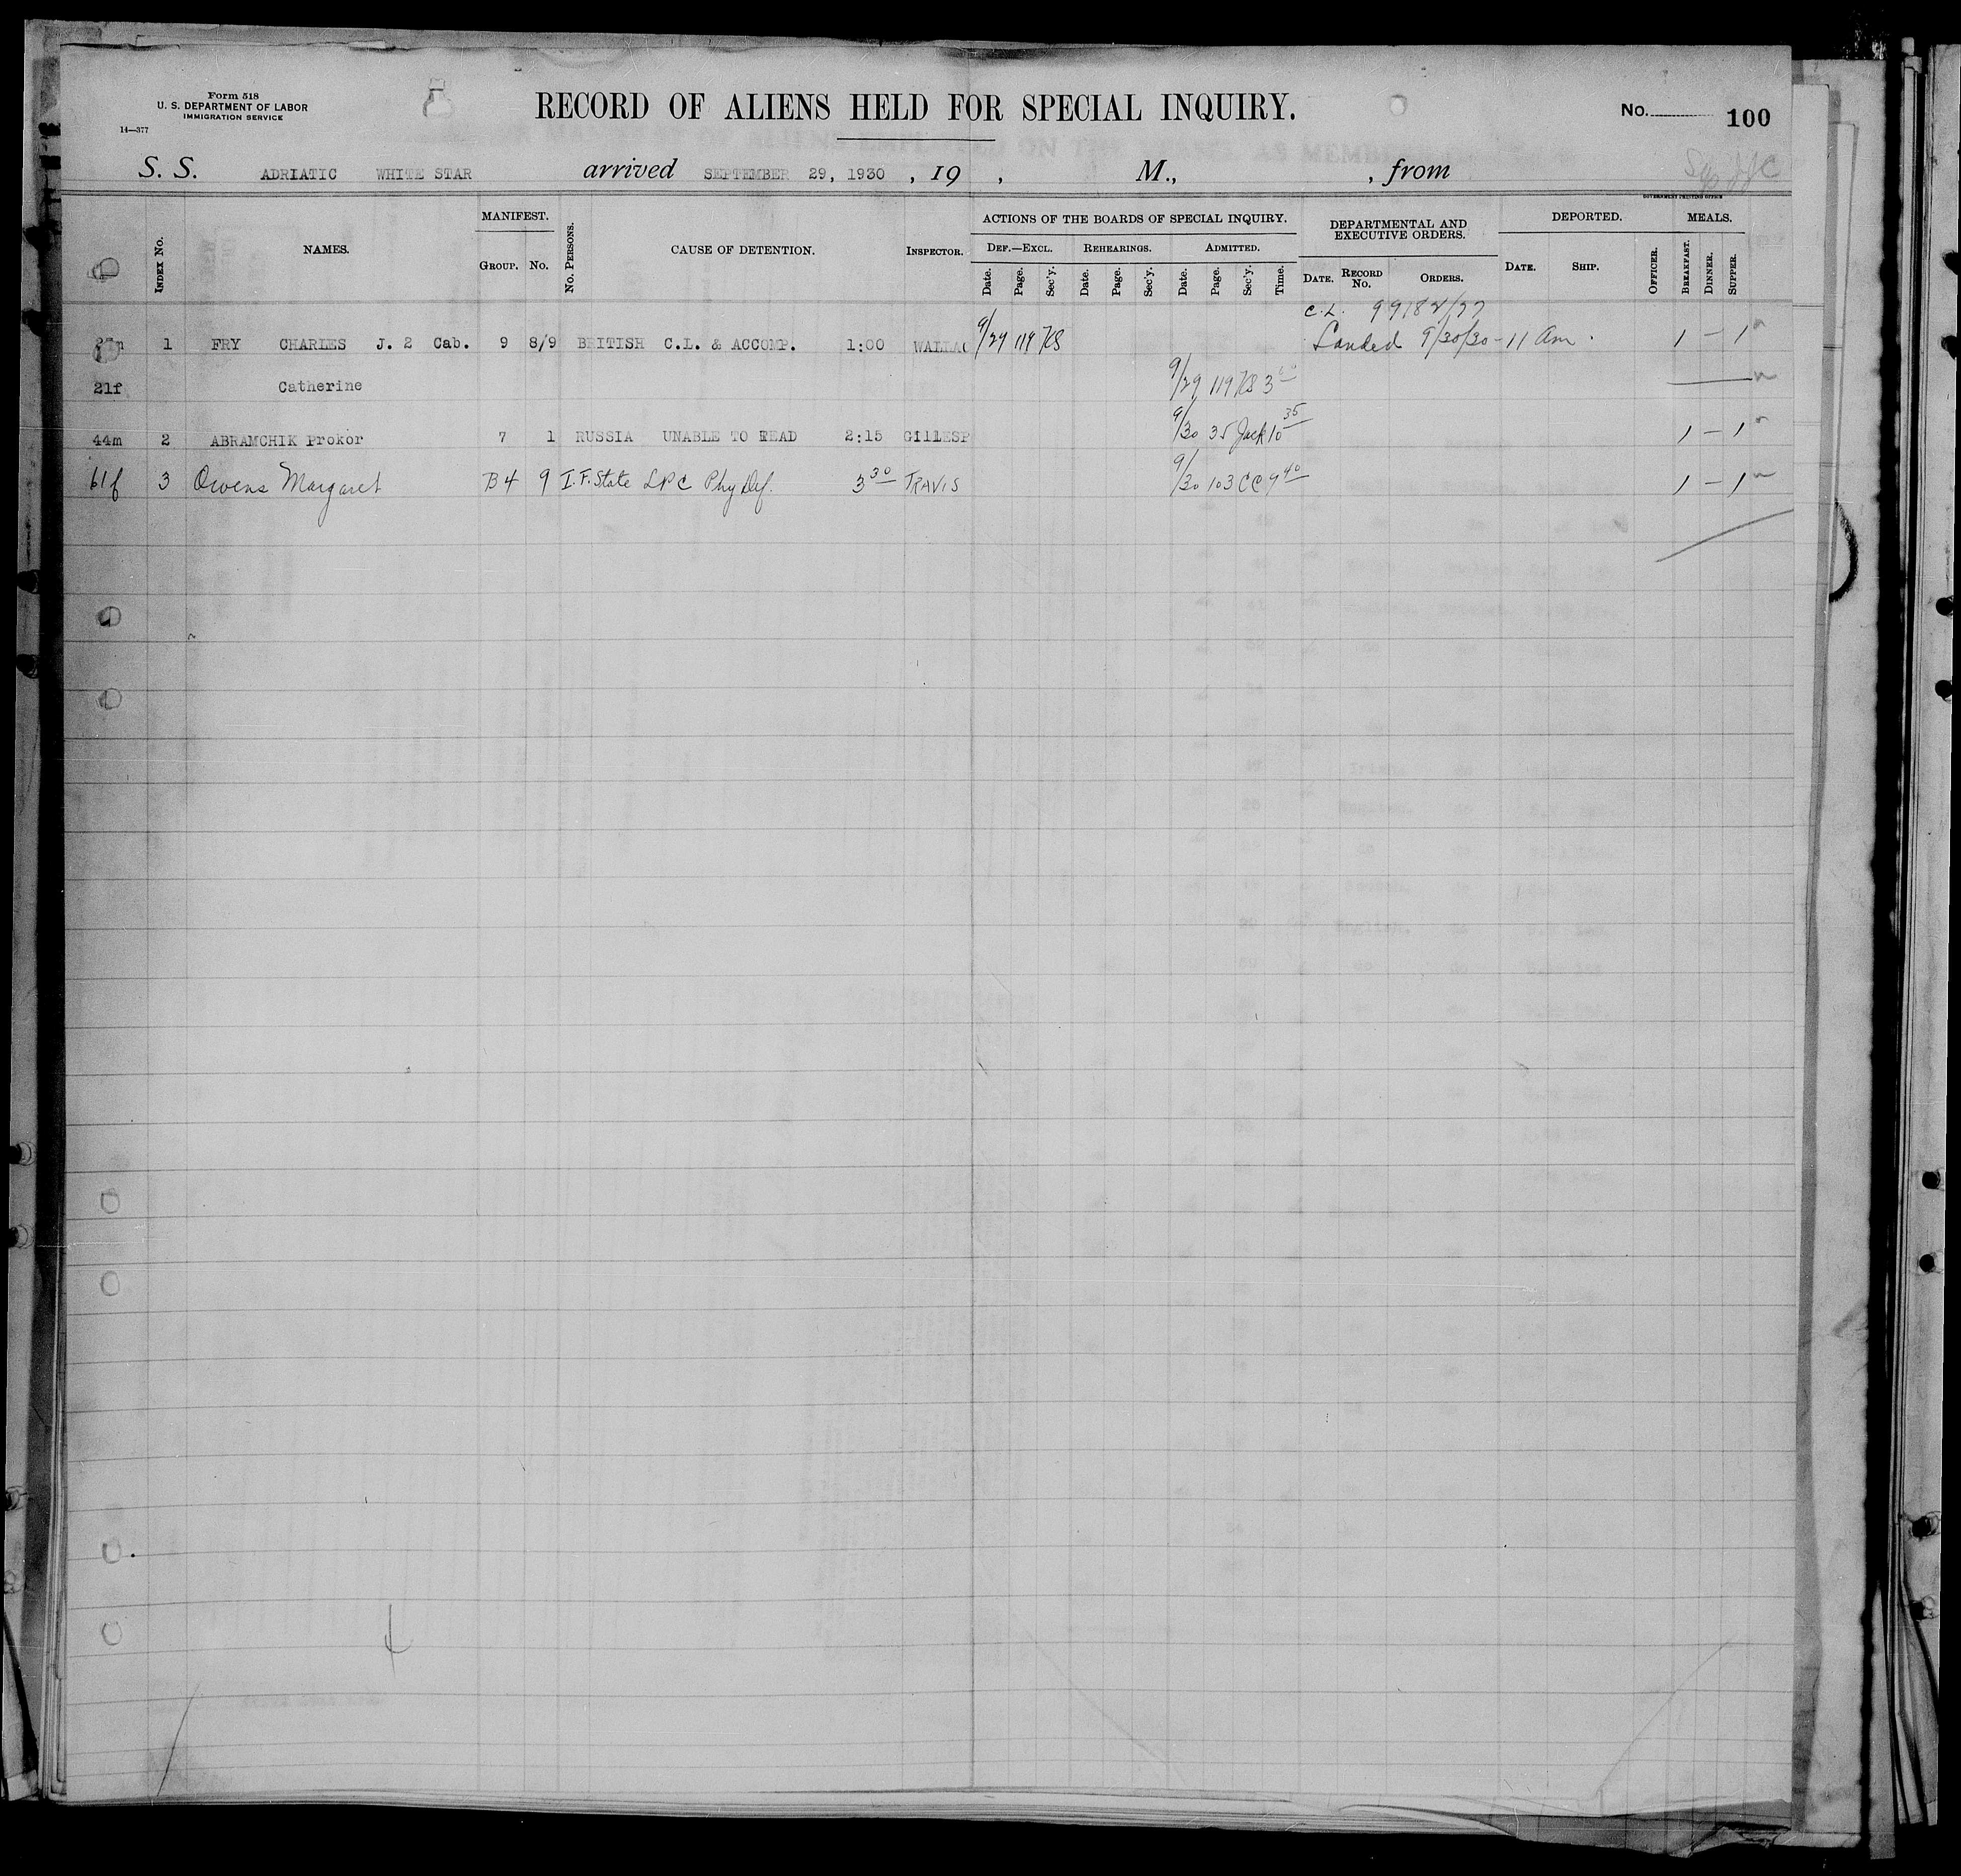 Form 518
U. S. DEPARTMENT OF LABOR
IMMIGRATION SERVICE
14—377
RECORD OF ALIENS HELD FOR SPECIAL INQUIRY.
No. 100
S. S. ADRIATIC WHITE STAR arrived SEPTEMBER 29, 1930 , 19 , M., , from
GOVERNMENT PRINTING OFFICE
INDEX No. NAMES. MANIFEST. GROUP. No. No. PERSONS. CAUSE OF DETENTION. INSPECTOR.
ACTIONS OF THE BOARDS OF SPECIAL INQUIRY.
DEF.—EXCL. Date. Page. Sec'y. REHEARINGS. Date. Page. Sec'y. ADMITTED. Date. Page. Sec'y. Time.
DEPARTMENTAL AND EXECUTIVE ORDERS. DATE. RECORD No. ORDERS.
DEPORTED. DATE. SHIP. OFFICER.
MEALS. BREAKFAST. DINNER. SUPPER.
C.L. 99182/77
1 FRY CHARLES J. 2 Cab. 9 8/9 BRITISH C.L. & ACCOMP. 1:00 WALLAC 9/29 119 KS Landed 9/30/30 - 11 Am. 1 — 1
21f Catherine 9/29 119 KS 3
44m 2 ABRAMCHIK Prokor 7 1 RUSSIA UNABLE TO READ 2:15 GillESP 9/30 35 Jack 10 35 1 — 1
61f 3 Owens Margaret B4 9 I.F. State LPC Phy Def. 3 30 TRAVIS 9/30 103 CC 9 40 1 — 1